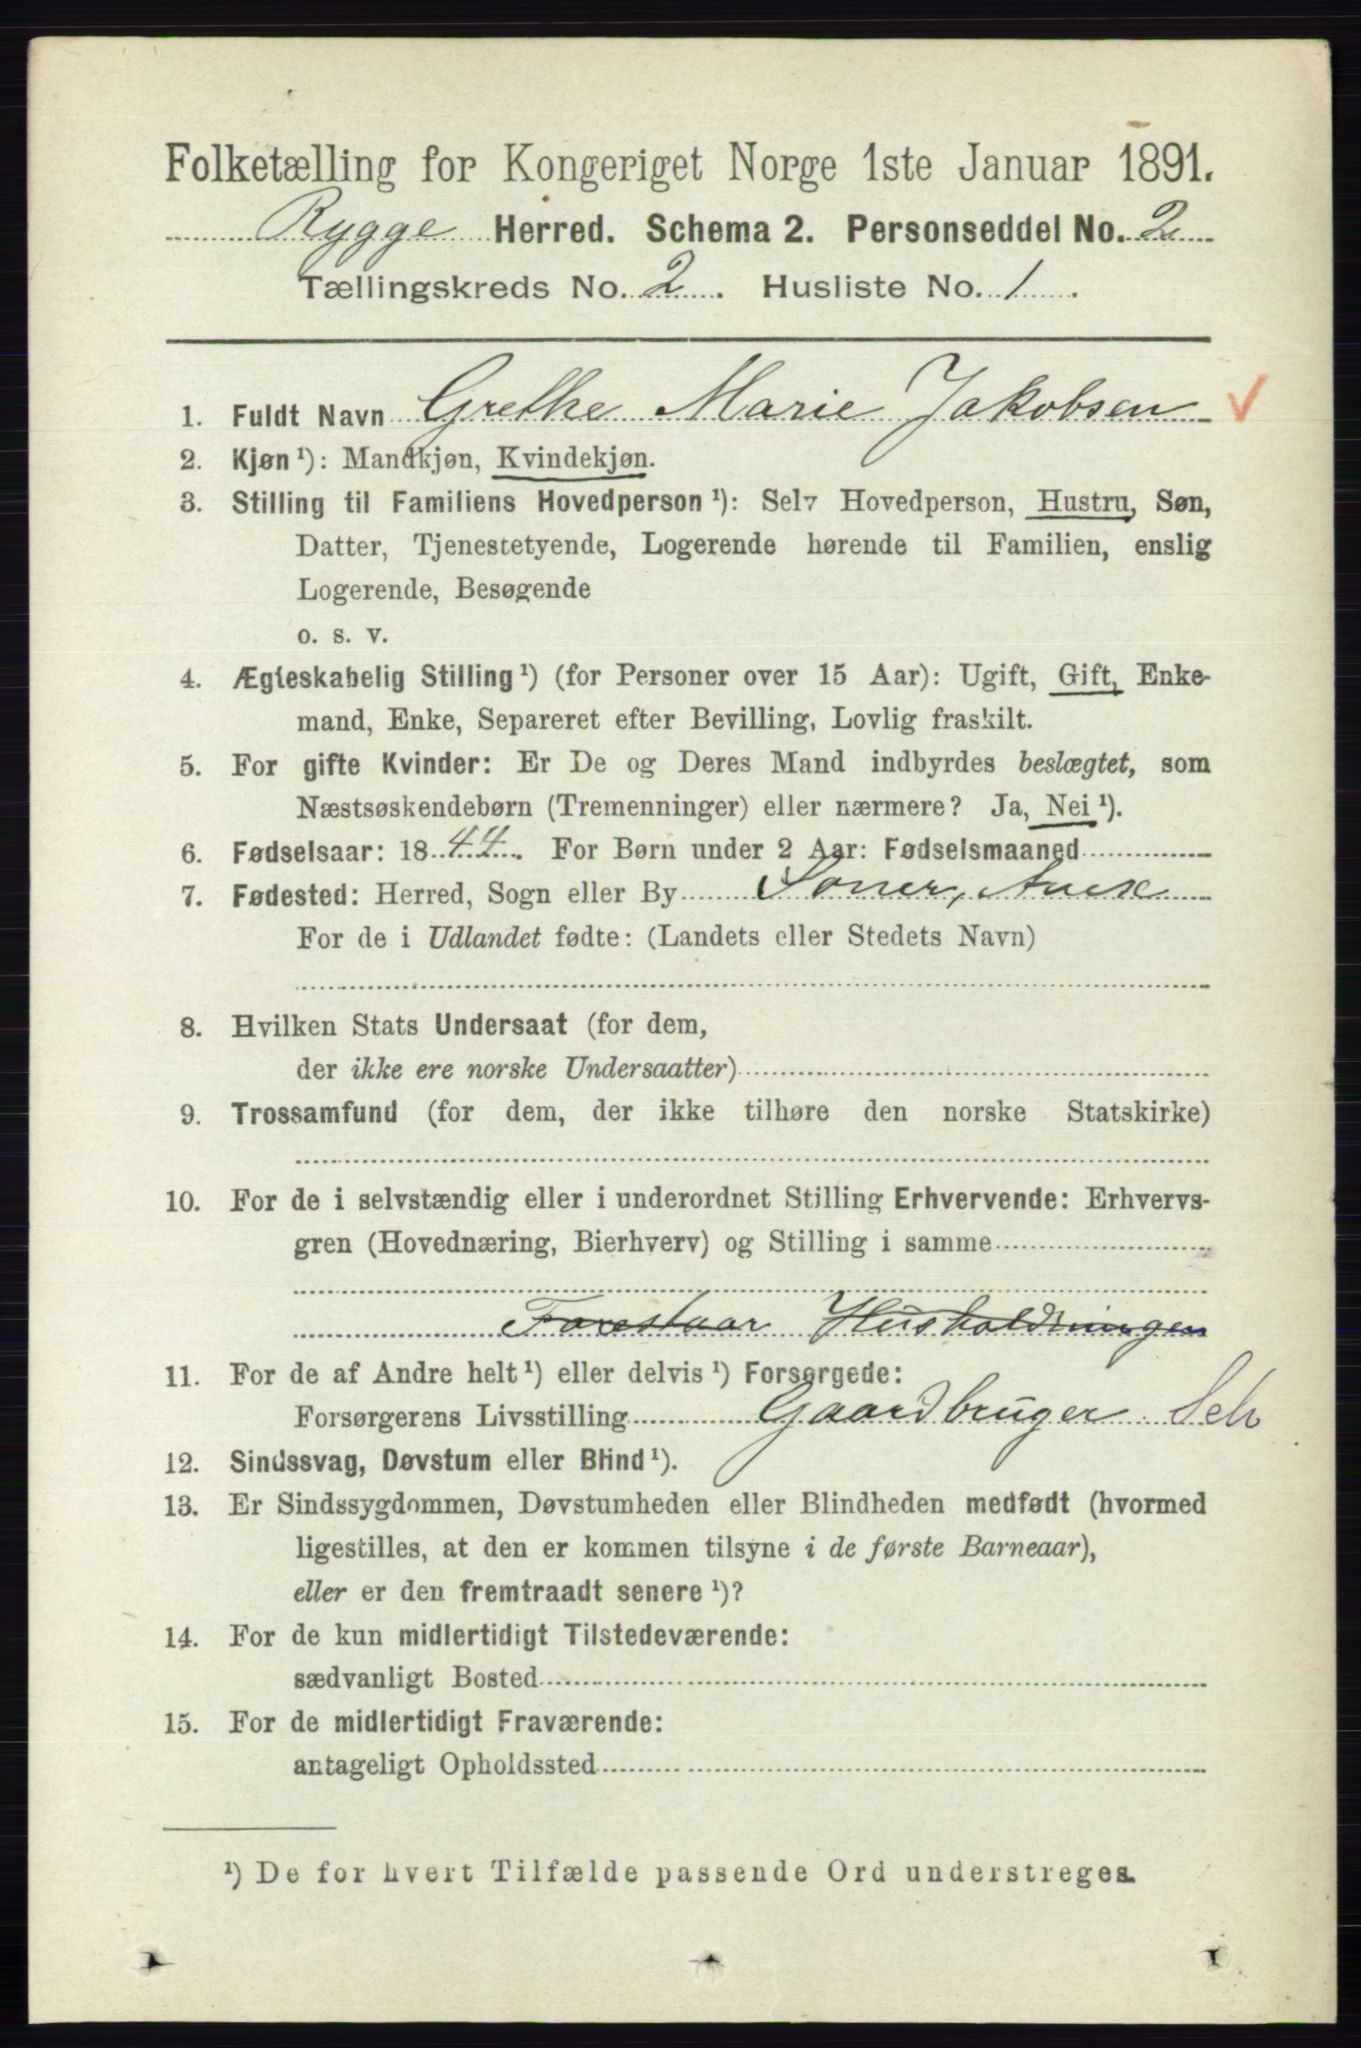 Folketælling for Kongeriget Norge 1ste Januar 1891.
Rygge Herred. Schema 2. Personseddel No. 2
Tællingskreds No. 2. Husliste No. 1.
1. Fuldt Navn Grethe Marie Jakobsen
2. Kjøn ¹): Mandkjøn, Kvindekjøn.
3. Stilling til Familiens Hovedperson ¹): Selv Hovedperson, Hustru, Søn,
Datter, Tjenestetyende, Logerende hørende til Familien, enslig
Logerende, Besøgende
o. s. v.
4. Ægteskabelig Stilling ¹) (for Personer over 15 Aar): Ugift, Gift, Enke-
mand, Enke, Separeret efter Bevilling, Lovlig fraskilt.
5. For gifte Kvinder: Er De og Deres Mand indbyrdes beslægtet, som
Næstsøskendebørn (Tremenninger) eller nærmere? Ja, Nei ¹).
6. Fødselsaar: 1844. For Børn under 2 Aar: Fødselsmaaned
7. Fødested: Herred, Sogn eller By
For de i Udlandet fødte: (Landets eller Stedets Navn)
8. Hvilken Stats Undersaat (for dem,
der ikke ere norske Undersaatter)
9. Trossamfund (for dem, der ikke tilhøre den norske Statskirke)
10. For de i selvstændig eller i underordnet Stilling Erhvervende: Erhvervs-
gren (Hovednæring, Bierhverv) og Stilling i samme
Forestaar Husholdningen
11. For de af Andre helt ¹) eller delvis ¹) Forsørgede:
Forsørgerens Livsstilling Gaardbruger Selv
12. Sindssvag, Døvstum eller Blind ¹).
13. Er Sindssygdommen, Døvstumheden eller Blindheden medfødt (hvormed
ligestilles, at den er kommen tilsyne i de første Barneaar),
eller er den fremtraadt senere ¹)?
14. For de kun midlertidigt Tilstedeværende:
sædvanligt Bosted
15. For de midlertidigt Fraværende:
antageligt Opholdssted
¹) De for hvert Tilfælde passende Ord understreges.